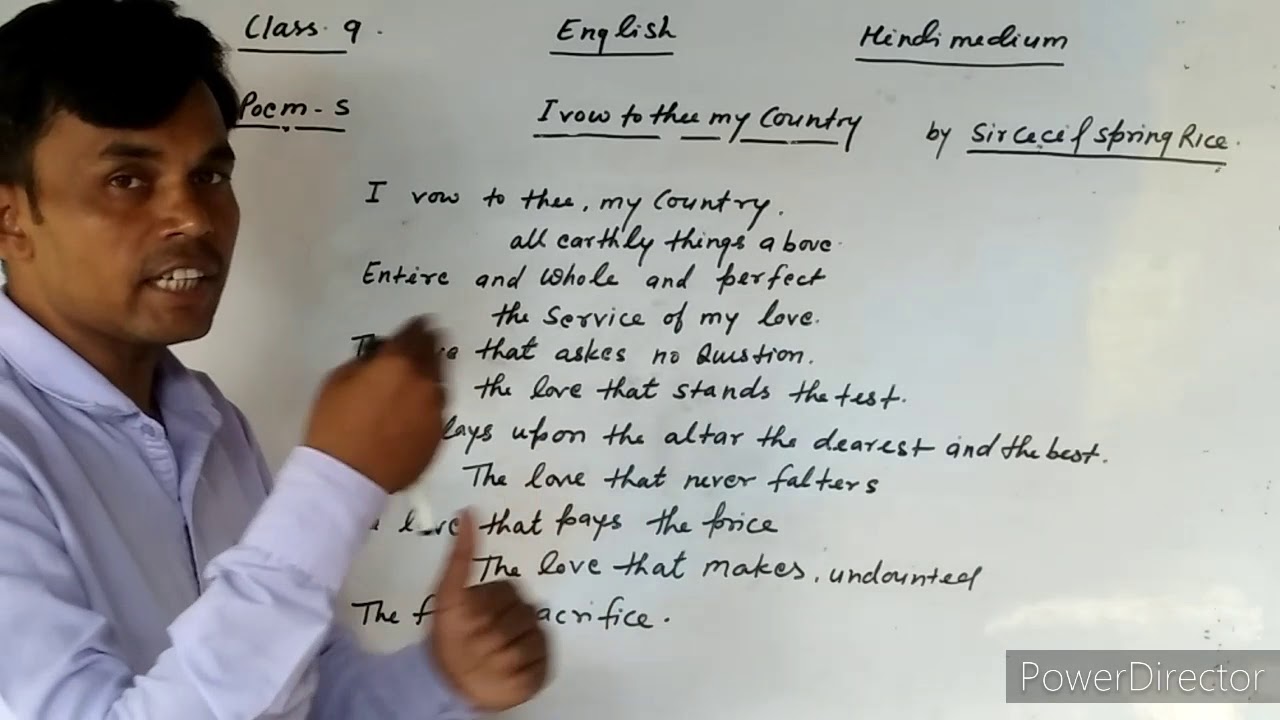 Class 9.
English
Hindi medium
Poem-5
I vow to thee my Country
by Sir Cecil Spring Rice.
I vow to thee, my Country.
all earthly things above.
Entire and whole and perfect
the service of my love.
that askes no Qustion.
the love that stands the test.
lays upon the altar the dearest and the best.
The love that never falters
that pays the price
The love that makes, undounted
The
PowerDirector